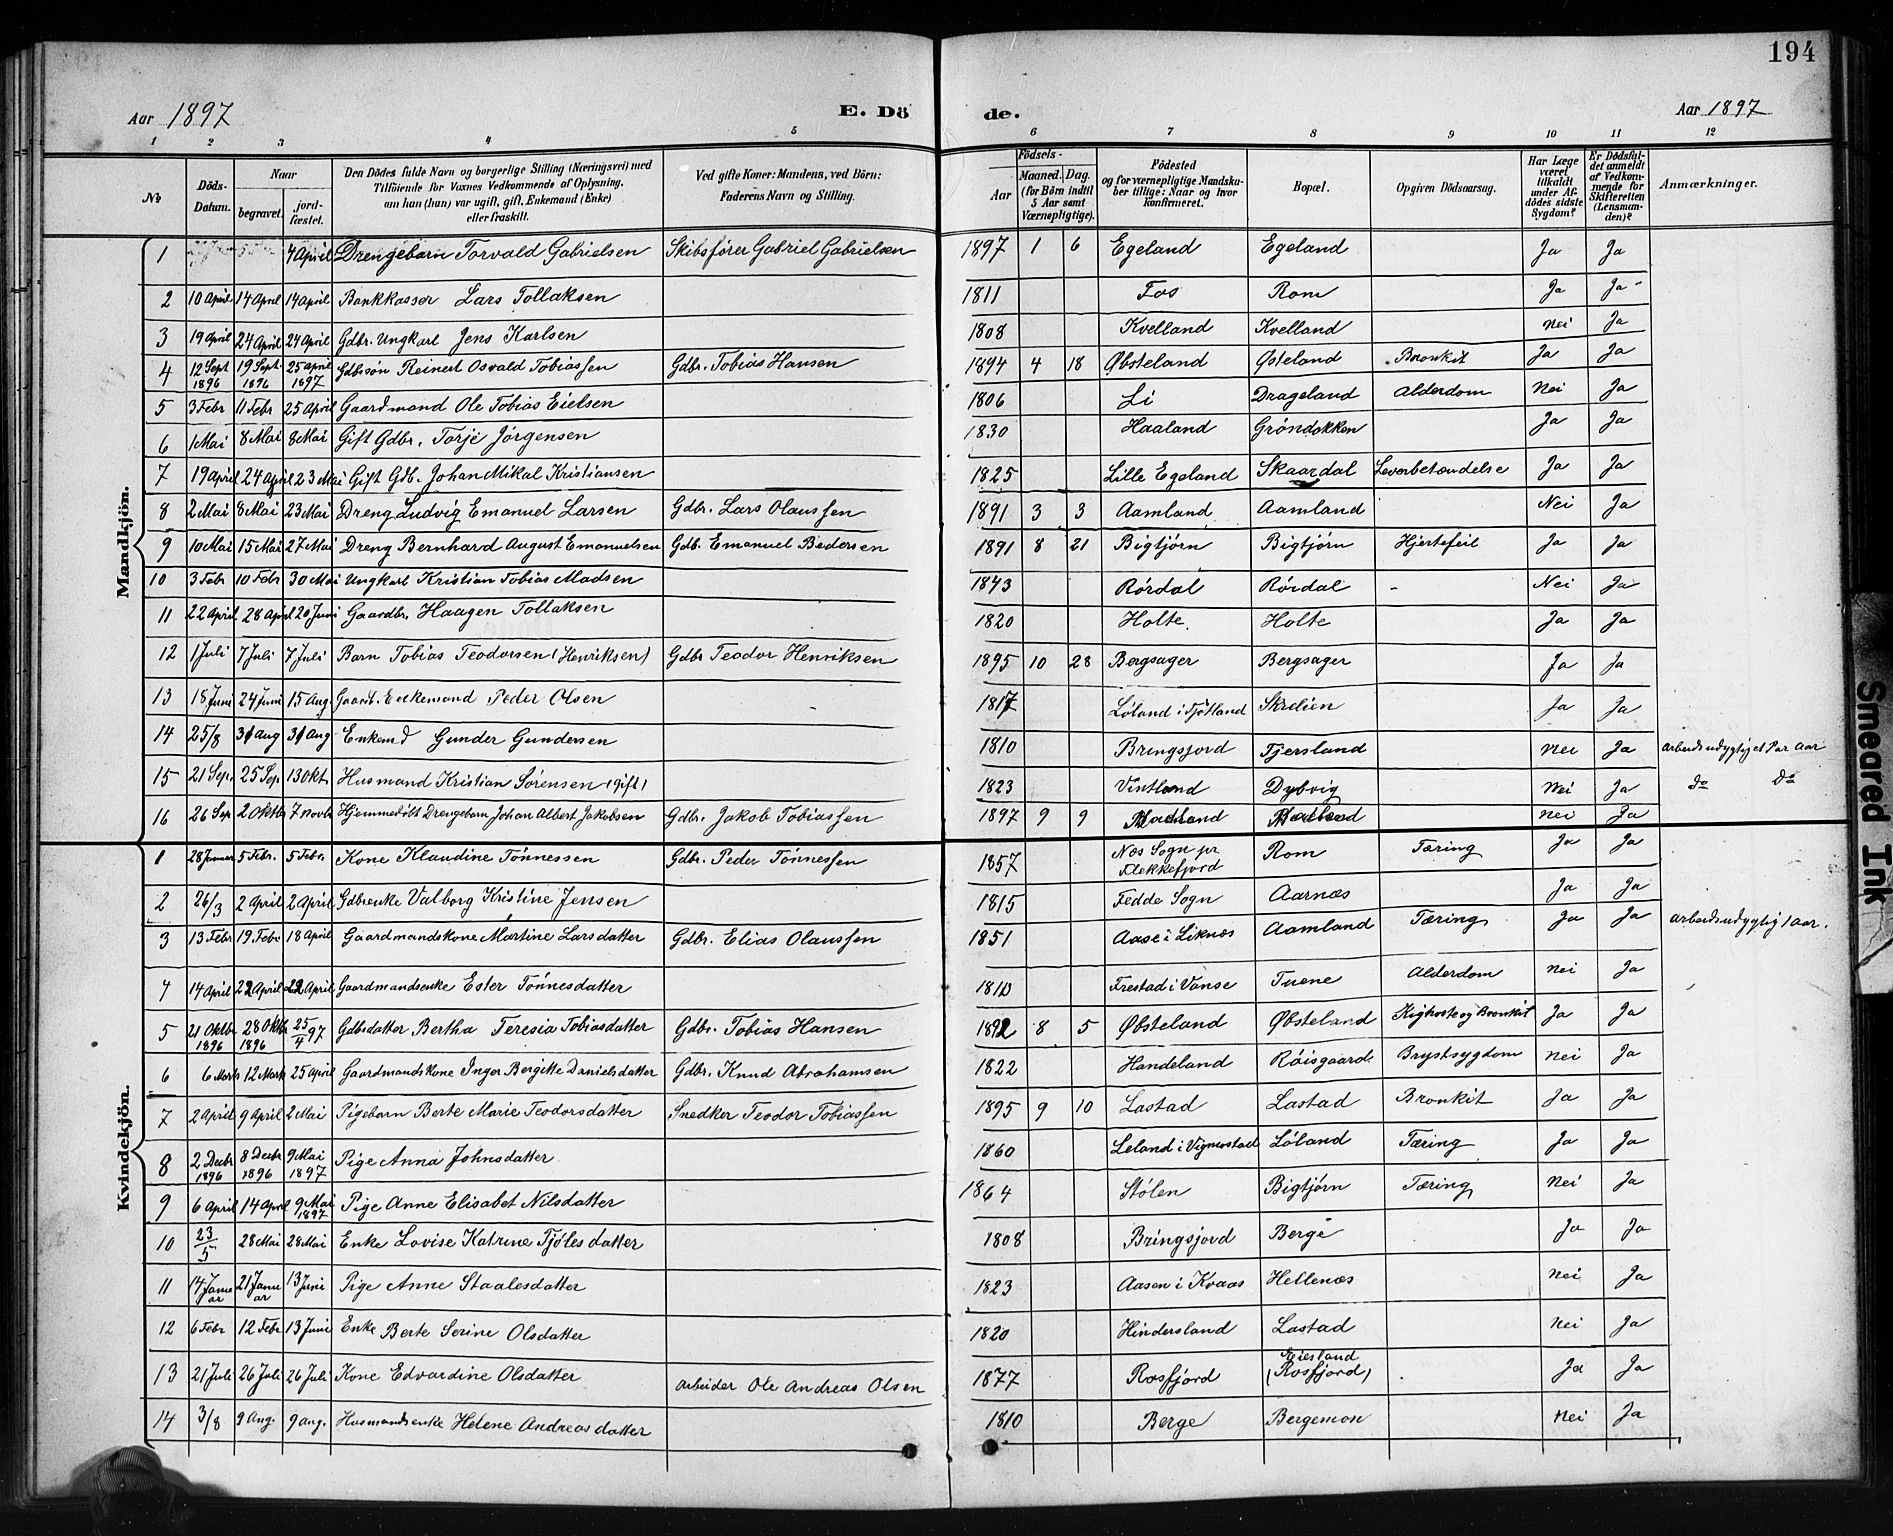 194
Aar 1897 E. Dö de. Aar 1897
1 2 3 4 5 6 7 8 9 10 11 12
№ Döds-Datum. Naar begravet. jordfæstet. Den Dödes fulde Navn og borgerlige Stilling (Næringsvei) med Tilföiende for Voxnes Vedkommende af Oplysning, om han (hun) var ugift, gift, Enkemand (Enke) eller fraskilt. Ved gifte Koner: Mandens, ved Börn: Faderens Navn og Stilling. Födsels- Aar Maaned. Dag. (for Börn indtil 5 Aar samt Værnepligtige). Födested og for værnepligtige Mandskaber tillige: Naar og hvor konfirmeret. Bopæl. Opgiven Dödsaarsag. Har Læge været tilkaldt under Afdödes sidste Sygdom? Er Dödsfaldet anmeldt af Vedkommende for Skifteretten (Lensmanden)? Anmærkninger.
Mandkjön.
1 4 April Drengebarn Torvald Gabrielsen Skibsfører Gabriel Gabrielsen 1897 1 6 Egeland Egeland Ja Ja
2 10 April 14 April 14 April Bankkasser Lars Tollaksen 1811 Fos Rom Ja Ja
3 19 April 24 April 24 April Gdbr. Ungkarl Jens Karlsen 1808 Kvelland Kvelland Nei Ja
4 12 Sept 1896 19 Sept. 1896 25 april 1897 Gdbrsøn Reinert Osvald Tobiassen Gdbr. Tobias Hansen 1894 4 18 Øbsteland Østeland Bronkit Ja Ja
5 3 Febr 11 Febr 25 April Gaardmand Ole Tobias Eielsen 1806 Li Drageland Alderdom Nei Ja
6 1 Mai 8 Mai 8 Mai Gift Gdbr. Torje Jørgensen 1830 Haaland Grøndokken Ja Ja
7 19 April 24 April 23 Mai Gift Gdb. Johan Mikal Kristiansen 1825 Lille Egeland Skaardal Leverbetændelse Ja Ja
8 2 Mai 8 Mai 23 Mai Dreng Ludvig Emanuel Larsen Gdbr. Lars Olaussen 1891 3 3 Aamland Aamland Nei Ja
9 10 Mai 15 Mai 27 Mai Dreng Bernhard August Emanuelsen Gdb. Emanuel Bedersen 1891 8 21 Bigtjørn Bigtjørn Hjertefeil Ja Ja
10 3 Febr 10 Febr 30 Mai Ungkarl Kristian Tobias Madsen 1843 Rørdal Rørdal - Nei Ja
11 22 April 28 April 20 Juni Gaardbr. Haagen Tollaksen 1820 Holte. Holte Ja Ja
12 1 Juli 7 Juli 7 Juli Barn Tobias Teodorsen (Henriksen) Gdbr Teodor Henriksen 1895 10 28 Bergsager Bergsager Ja Ja
13 18 Juni 24 Juni 15 Aug. Gaardb. Enkemand Peder Olsen 1817 Løland i Fjotland Skrelien Ja Ja
14 25/8 31 Aug 31 Aug Enkemd Gunder Gundersen 1810 Bringsjord Tjersland Nei Ja arbeidsudygtig et Par Aar
15 21 Sep. 25 Sep. 13 Okt. Husmand Kristian Sørensen (Gift) 1823 Vintland Dybvig Nei Ja do do
16 26 Sep 2 Oktb 7 Novbr Hjemmedøbt Drengebarn Johan Albert Jakobsen Gdbr. Jakob Tobiassen 1897 9 9 Nei Ja
Kvindekjön.
1 28 Januar 5 Febr. 5 Febr. Kone Klaudine Tønnessen Gdbr. Peder Tønnessen 1857 Næs Sogn pr Flekkefjord Rom Tæring Ja Ja
2 26/3 2 April 2 April Gdbrenke Valborg Kristine Jensen 1815 Fedde Sogn Aarnæs Ja Ja
3 13 Febr 19 Febr 18 April Gaardmandskone Martine Larsdatter Gdbr. Elias Olaussen 1851 Aase i Liknæs Aamland Tæring Ja Ja arbeidsudygtig 1 aar.
4 14 April 22 April 22 April Gaardmandsenke Ester Tønnesdatter 1810 Frestad i Vanse Tuene Alderdom Nei Ja
5 21 Oktbr 1896 28 Oktb 1896 25/4 97 Gdbsdatter Bertha Teresia Tobiasdatter Gdbr. Tobias Hansen 1892 8 5 Øbsteland Øbsteland Kighoste og Bronkit Ja Ja
6 6 Marts 12 Marts 25 April Gaardmandskone Inger Bergitte Danielsdatter Gdbr. Knud Abrahamsen 1822 Handeland Røisgaard Brystsygdom Nei Ja
7 2 April 9 April 2 Mai Pigebarn Berte Marie Teodorsdatter Snedker Teodor Tobiassen 1895 9 10 Lastad Lastad Bronkit Ja Ja
8 2 Decbr 1896 8 Decbr 1896 9 Mai 1897 Pige Anna Johnsdatter 1860 Leland i Vigmostad Løland Tæring Ja Ja
9 6 April 14 April 9 Mai 1897 Pige Anne Elisabet Nilsdatter 1864 Stølen Bigtjørn Tæring Nei Ja
10 23/5 28 Mai 28 Mai Enke Lovise Katrine Tjølesdatter 1808 Bringsjord Berge Ja Ja
11 14 Januar 21 Januar 13 Juni Pige Anne Staalesdatter 1823 Aasen i Kvaas Hellenæs Nei Ja
12 6 Febr 12 Febr 13 Juni Enke Berte Serine Olsdatter 1820 Hindersland Lastad Nei Ja
13 21 Juli 26 Juli 26 Juli Kone Edvardine Olsdatter arbeider Ole Andreas Olsen 1877 Rosfjord Eiesland (Rosfjord) Ja Ja
14 3/8 9 Aug. 9 Aug. Husmandsenke Helene Andreasdatter 1810 Berge Bergemon Nei Ja
Smeared Ink